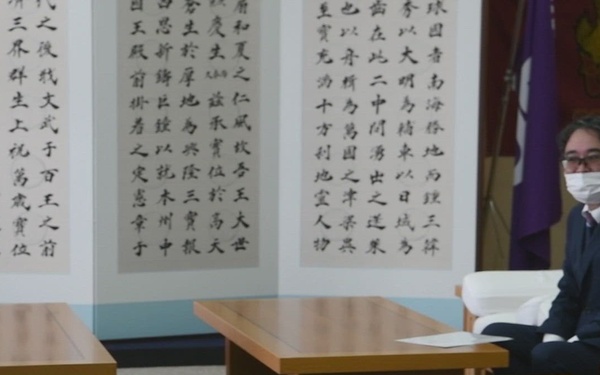 球國者南海勝地而鍾三韓
秀以大明為輔車以日域為
齒在此二中間湧出之蓬萊
也以舟楫為萬國之津梁異
至寶充滿十方刹地靈人物
扇和夏之仁風故吾王大世
慶生尚泰久茲承寶位於高天
生於厚地為興隆三寶報
四恩新鑄巨鐘以就本州中
國王殿前掛着之定憲章于
代之後戢文武于百王之前
濟三界群生上祝萬歲寶位